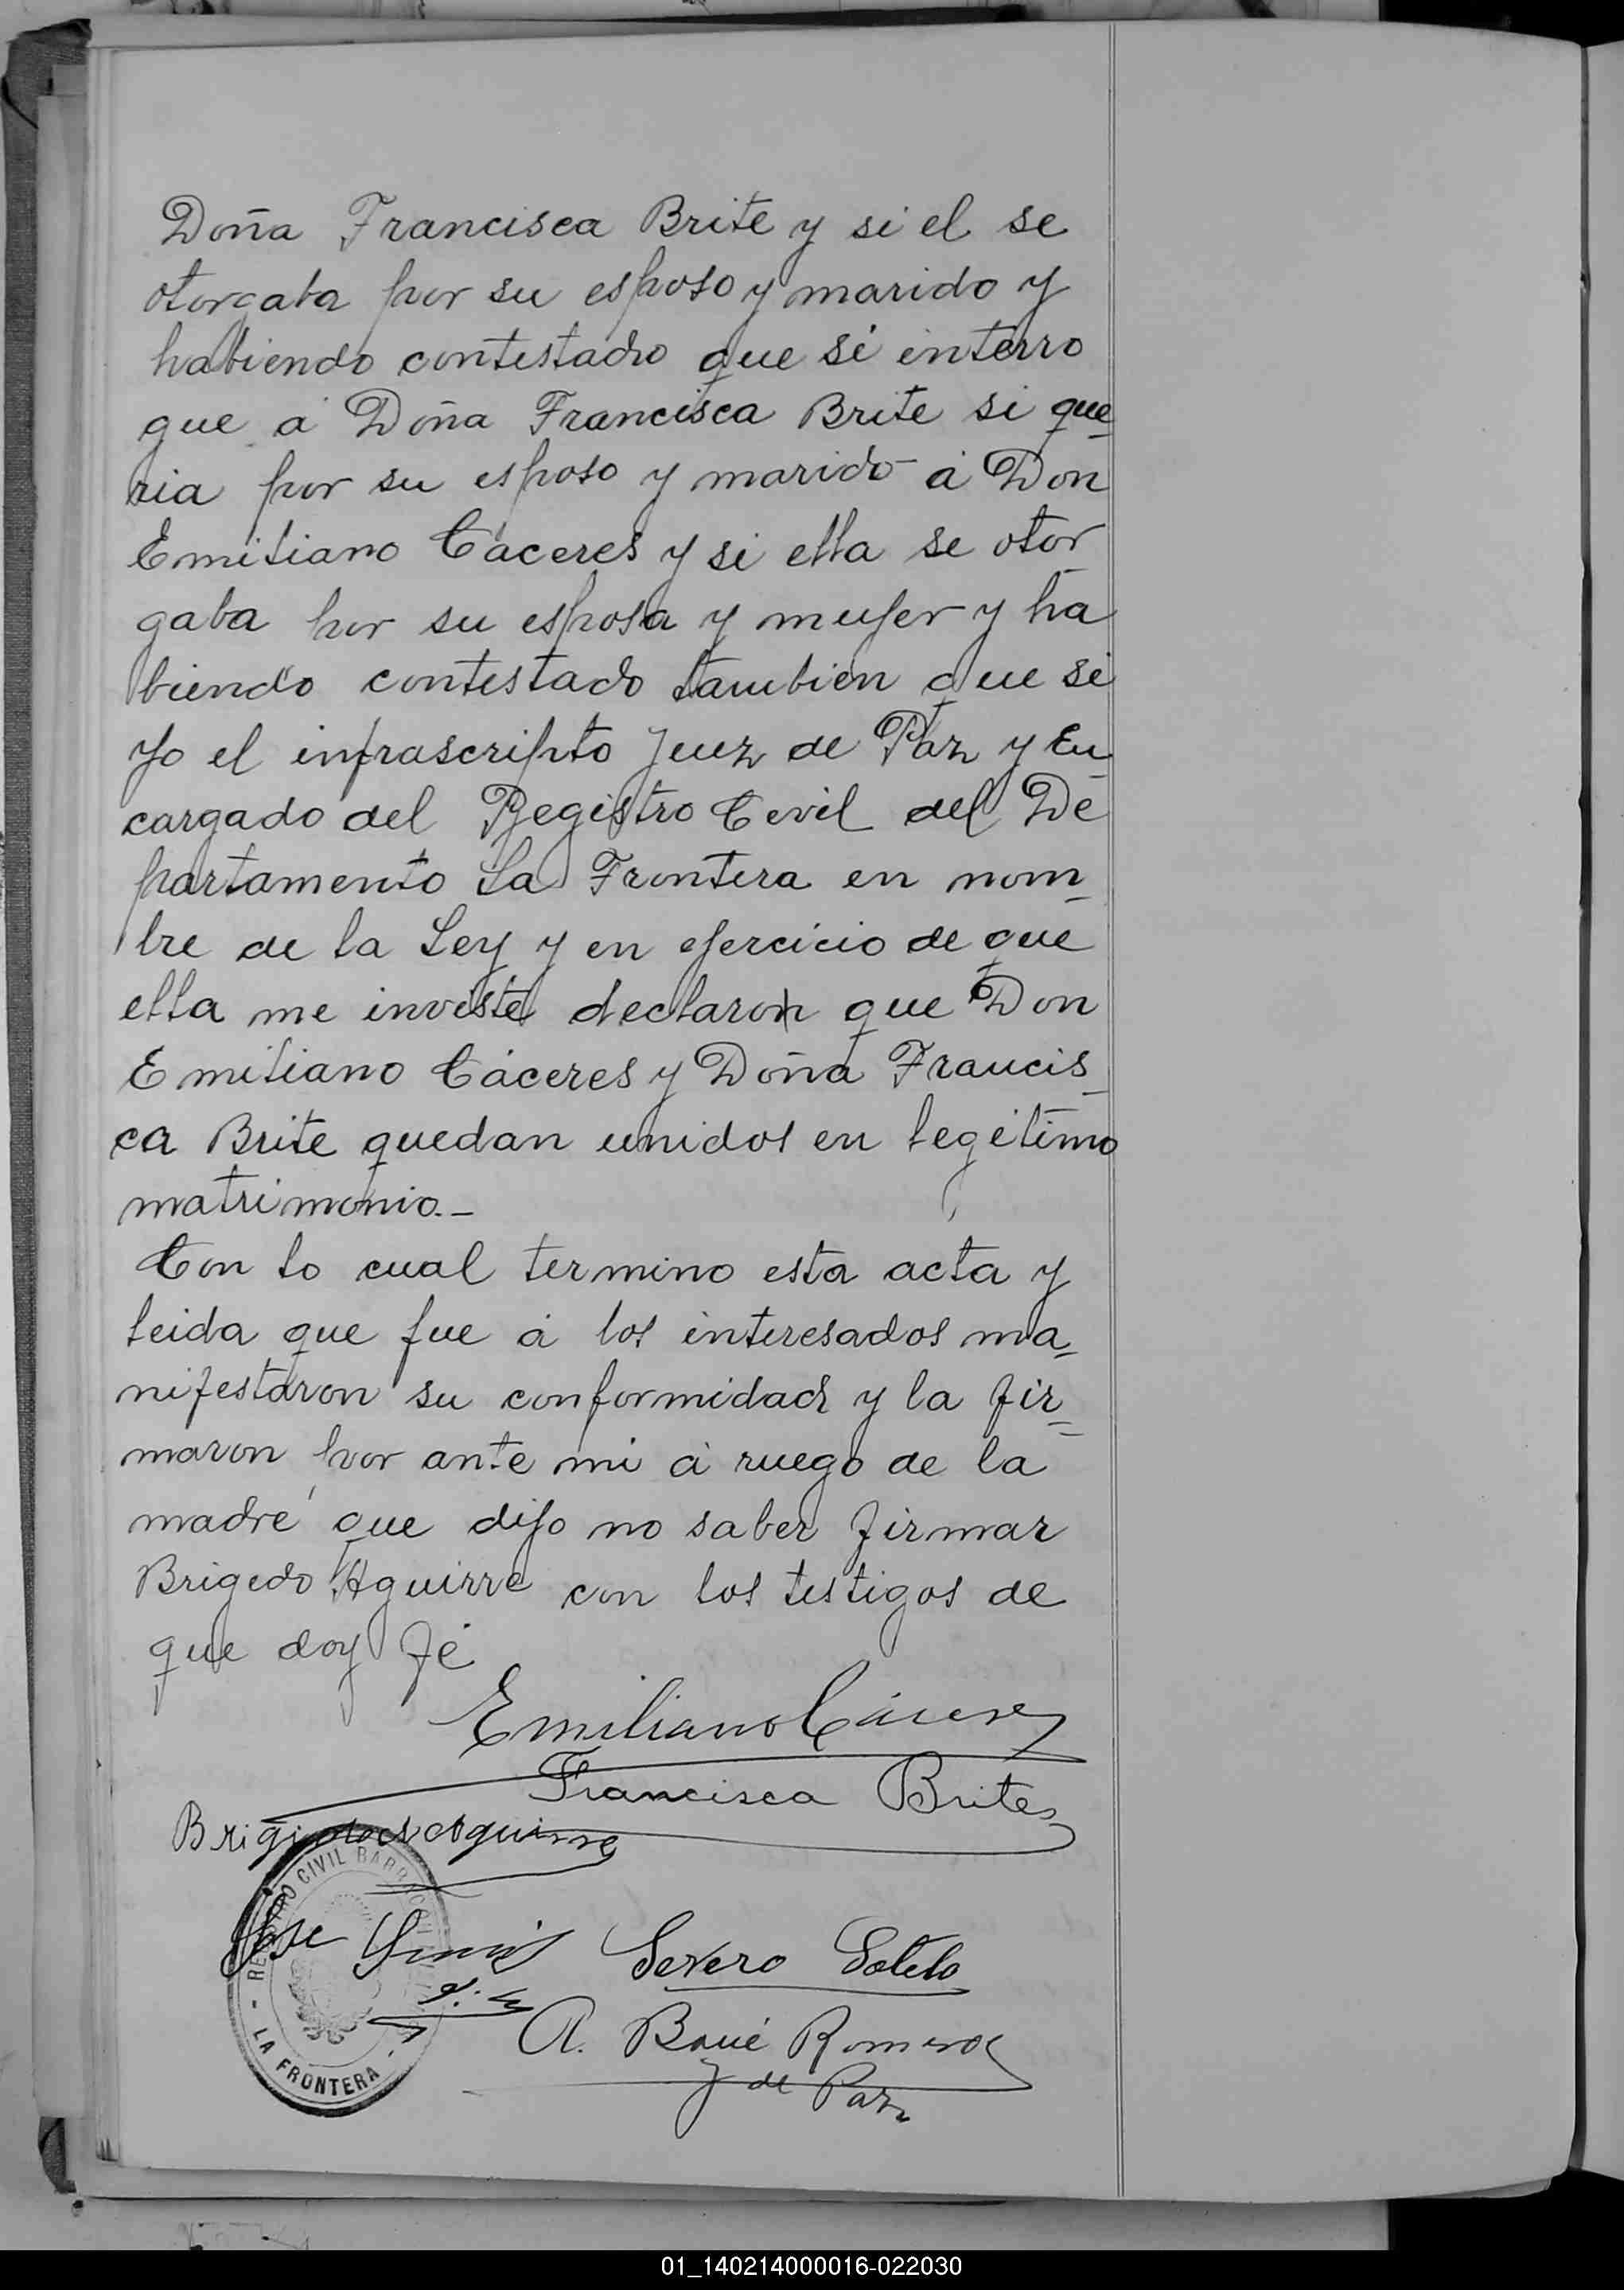 Doña Francisca Brite y si el se
otorgaba por su esposo y marido y
habiendo contestado que si interro
gue á Doña Francisca Brite si que
ria por su esposo y marido á Don
Emiliano Cáceres y si ella se otor
gaba por su esposa y mujer y ha
biendo contestado tambien que si
Yo el infrascripto Juez de Paz y En
cargado del Registro Civil del De
partamento La Frontera en nom
bre de la Ley y en ejercicio de que
ella me inviste declaron que Don
Emiliano Cáceres y Doña Francis
ca Brite quedan unidos en legitimo
matrimonio.-
Con lo cual termino esta acta y
leida que fue á los interesados ma
nifestaron su conformidad y la fir
maron por ante mi á ruego de la
madre que dijo no saber firmar
Brigedo Aguirre con los testigos de
que doy fé
Emiliano Cáceres
Francisca Brites
Brigido Aguirre
REGISTRO CIVIL
Jose
Severo Sotelo
A. Romero
J de Paz
LA FRONTERA
01_140214000016-022030